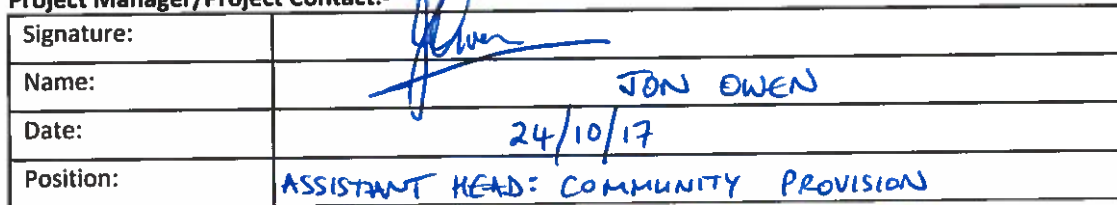 Project Manager/Project Contact:-
Signature:
Name: JON OWEN
Date: 24/10/17
Position: ASSISTANT HEAD: COMMUNITY PROVISION